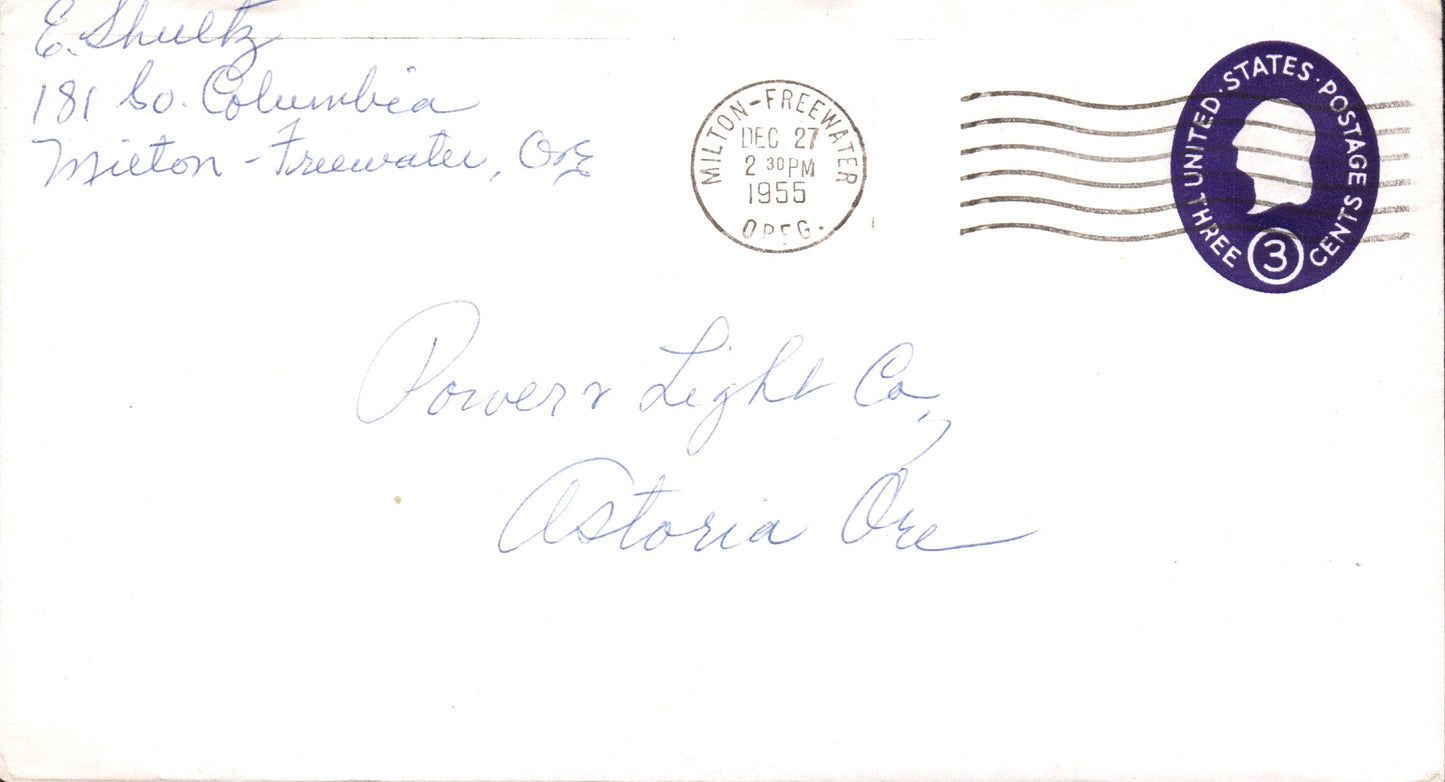 E. Shultz
181 So. Columbia
Milton-Freewater, Ore
MILTON-FREEWATER
DEC 27
2 30 PM
1955
OREG.
UNITED STATES POSTAGE
THREE 3 CENTS
Power & Light Co,
Astoria Ore